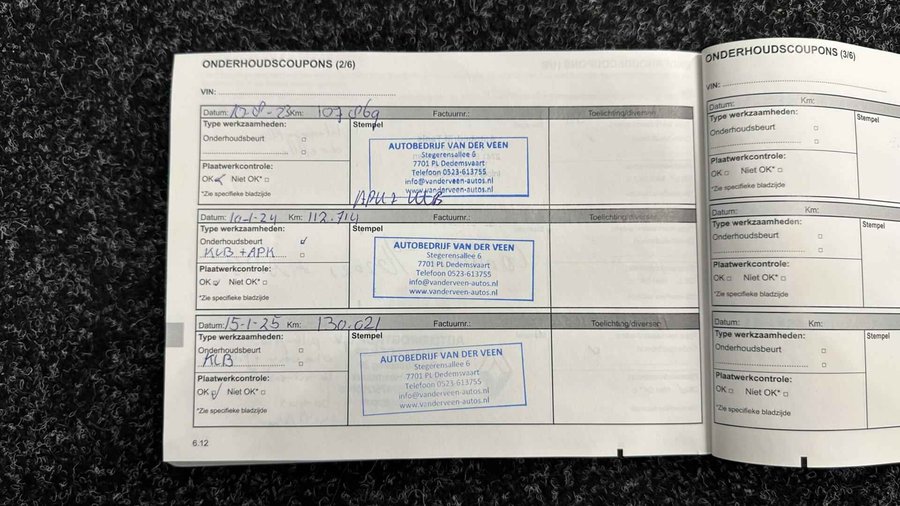 ONDERHOUDSCOUPONS (2/6)
VIN:
Datum: 10-8-23 Km: 107 869 Factuurnr.: Toelichting/diversen
Type werkzaamheden: Stempel
Onderhoudsbeurt
Plaatwerkcontrole:
OK Niet OK*
*Zie specifieke bladzijde
AUTOBEDRIJF VAN DER VEEN
Stegerensallee 6
7701 PL Dedemsvaart
Telefoon 0523-613755
info@vanderveen-autos.nl
www.vanderveen-autos.nl
KLB
Datum: 10-1-24 Km: 112.714 Factuurnr.: Toelichting/diversen
Type werkzaamheden: Stempel
Onderhoudsbeurt
KLB + APK
Plaatwerkcontrole:
OK Niet OK*
*Zie specifieke bladzijde
AUTOBEDRIJF VAN DER VEEN
Stegerensallee 6
7701 PL Dedemsvaart
Telefoon 0523-613755
info@vanderveen-autos.nl
www.vanderveen-autos.nl
Datum: 15-1-25 Km: 130.021 Factuurnr.: Toelichting/diversen
Type werkzaamheden: Stempel
Onderhoudsbeurt
KLB
Plaatwerkcontrole:
OK Niet OK*
*Zie specifieke bladzijde
AUTOBEDRIJF VAN DER VEEN
Stegerensallee 6
7701 PL Dedemsvaart
Telefoon 0523-613755
info@vanderveen-autos.nl
www.vanderveen-autos.nl
6.12
ONDERHOUDSCOUPONS (3/6)
VIN:
Datum: Km:
Type werkzaamheden: Stempel
Onderhoudsbeurt
Plaatwerkcontrole:
OK Niet OK*
*Zie specifieke bladzijde
Datum: Km:
Type werkzaamheden: Stempel
Onderhoudsbeurt
Plaatwerkcontrole:
OK Niet OK*
*Zie specifieke bladzijde
Datum: Km:
Type werkzaamheden: Stempel
Onderhoudsbeurt
Plaatwerkcontrole:
OK Niet OK*
*Zie specifieke bladzijde